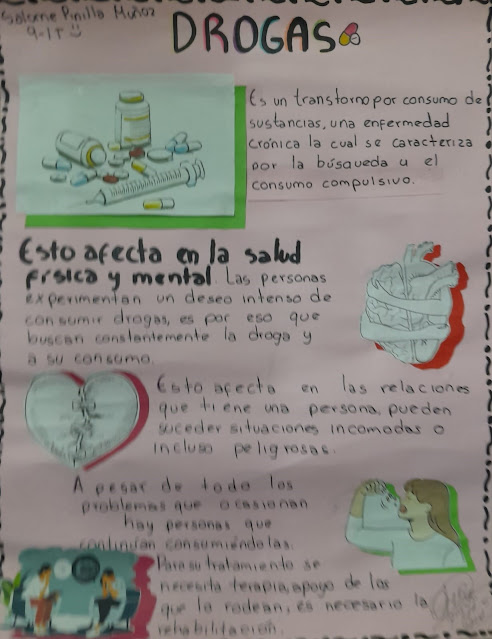 Salome Pinilla Muñoz
9-1T
DROGAS
Es un transtorno por consumo de
sustancias, una enfermedad
crónica la cual se caracteriza
por la búsqueda u el
consumo compulsivo.
Esto afecta en la salud
física y mental. Las personas
experimentan un deseo intenso de
consumir drogas, es por eso que
buscan constantemente la droga y
a su consumo.
Esto afecta en las relaciones
que tiene una persona, pueden
suceder situaciones incomodas o
incluso peligrosas.
A pesar de todo los
problemas que ocasionan
hay personas que
continúan consumiéndolas.
Para su tratamiento se
necesita terapia, apoyo de los
que lo rodean, es necesario la
rehabilitación.